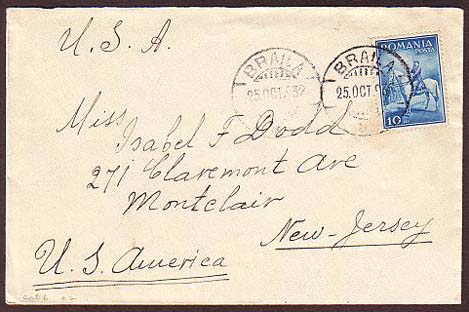 U. S. A.
BRAILA
25.OCT.932
BRAILA
25.OCT.9
ROMANIA
POSTA
10
Miss
Isabel F Dodd
271 Claremont Ave
Montclair
New-Jersey
U. S. America